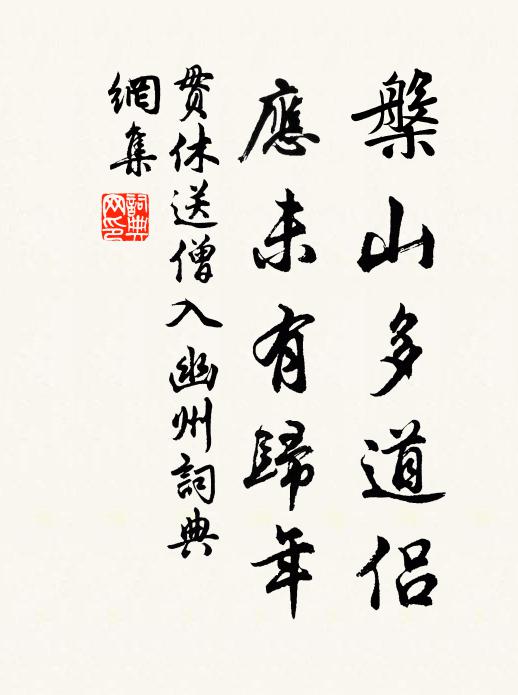 槃山多道侶
應未有歸年
贯休送僧入幽州詞典
網集
詞典
网印